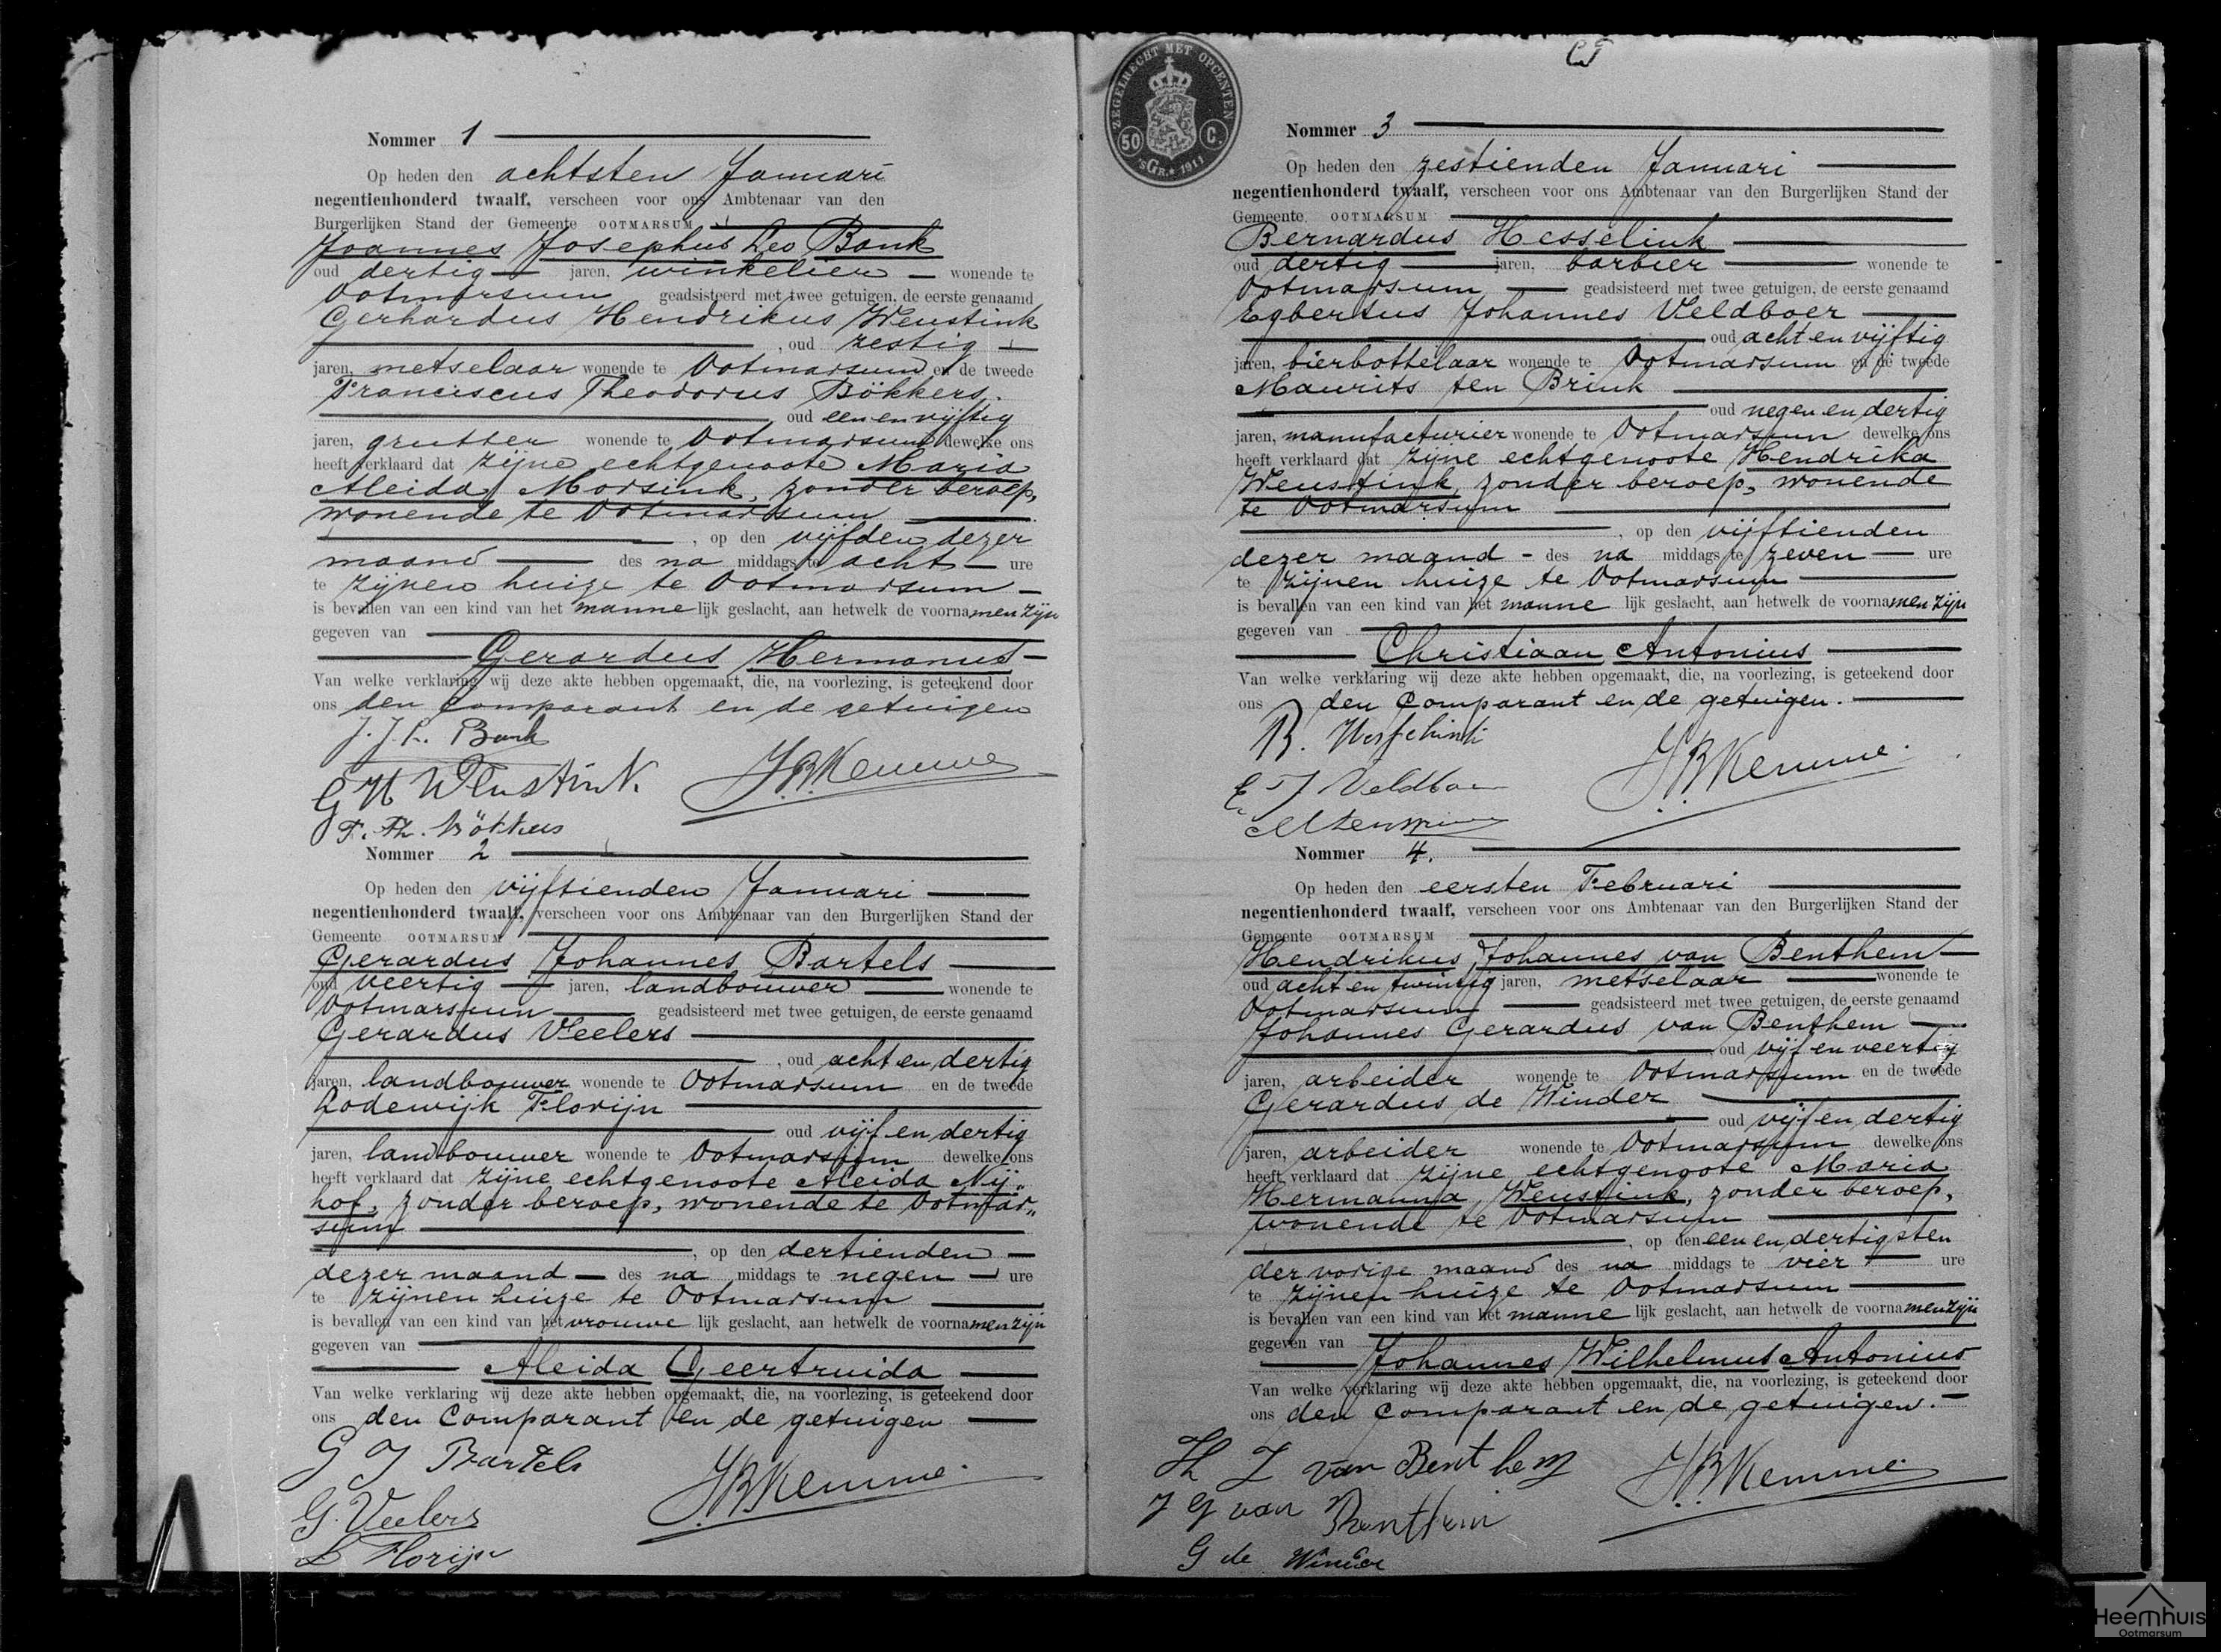 Nommer 1
Op heden den achtsten Januari
negentienhonderd twaalf, verscheen voor ons Ambtenaar van den
Burgerlijken Stand der Gemeente OOTMARSUM
Joannes Josephus Leo Bank
oud dertig jaren, winkelier wonende te
Ootmarsum geadsisteerd met twee getuigen, de eerste genaamd
Gerhardus Hendrikus Weustink
, oud zestig
jaren, metselaar wonende te Ootmarsum en de tweede
Franciscus Theodorus Bökkers.
oud een en vijftig
jaren, grutter wonende te Ootmarsum dewelke ons
heeft verklaard dat zijne echtgenoote Maria
Aleida Morsink, zonder beroep,
wonende te Ootmarsum
, op den vijfden dezer
maand des na middags te acht ure
te zijnen huize te Ootmarsum
is bevallen van een kind van het manne lijk geslacht, aan hetwelk de voornamen zijn
gegeven van
Gerardus Hermanus
Van welke verklaring wij deze akte hebben opgemaakt, die, na voorlezing, is geteekend door
ons den Comparant en de getuigen
J. J. L. Bank
G H Weustink. J.B.Kemme
F. Th. Bökkers
Nommer 2
Op heden den vijftienden Januari
negentienhonderd twaalf, verscheen voor ons Ambtenaar van den Burgerlijken Stand der
Gemeente OOTMARSUM
Gerardus Johannes Bartels
oud veertig jaren, landbouwer wonende te
Ootmarsum geadsisteerd met twee getuigen, de eerste genaamd
Gerardus Veelers
, oud acht en dertig
jaren, landbouwer wonende te Ootmarsum en de tweede
Lodewijk Florijn
oud vijf en dertig
jaren, landbouwer wonende te Ootmarsum dewelke ons
heeft verklaard dat zijne echtgenoote Aleida Nij„
hof, zonder beroep, wonende te Ootmar„
sum
, op den dertienden
dezer maand des na middags te negen ure
te zijnen huize te Ootmarsum
is bevallen van een kind van het vrouwe lijk geslacht, aan hetwelk de voornamen zijn
gegeven van
Aleida Geertruida
Van welke verklaring wij deze akte hebben opgemaakt, die, na voorlezing, is geteekend door
ons den Comparant en de getuigen
G J Bartels
J.B.Kemme.
G. Veelers
L Florijn
ZEGELRECHT MET OPCENTEN
50 C.
'sGR. 1911
Nommer 3
Op heden den zestienden Januari
negentienhonderd twaalf, verscheen voor ons Ambtenaar van den Burgerlijken Stand der
Gemeente OOTMARSUM
Bernardus Hesselink
oud dertig jaren, barbier wonende te
Ootmarsum geadsisteerd met twee getuigen, de eerste genaamd
Egbertus Johannes Veldboer
oud acht en vijftig
jaren, bierbottelaar wonende te Ootmarsum en de tweede
Maurits ten Brink
oud negen en dertig
jaren, manufacturier wonende te Ootmarsum dewelke ons
heeft verklaard dat zijne echtgenoote Hendrika
Weustink, zonder beroep, wonende
te Ootmarsum
, op den vijftienden
dezer maand - des na middags te zeven ure
te zijnen huize te Ootmarsum
is bevallen van een kind van het manne lijk geslacht, aan hetwelk de voornamen zijn
gegeven van
Christiaan Antonius
Van welke verklaring wij deze akte hebben opgemaakt, die, na voorlezing, is geteekend door
ons den Comparant en de getuigen.
B. Hesselink
J.B.Kemme.
E. J Veldboer
Nommer 4.
Op heden den eersten Februari
negentienhonderd twaalf, verscheen voor ons Ambtenaar van den Burgerlijken Stand der
Gemeente OOTMARSUM
Hendrikus Johannes van Benthem
oud acht en twintig jaren, metselaar wonende te
Ootmarsum geadsisteerd met twee getuigen, de eerste genaamd
Johannes Gerardus van Benthem
oud vijf en veertig
jaren, arbeider wonende te Ootmarsum en de tweede
Gerardus de Winder
oud vijf en dertig
jaren, arbeider wonende te Ootmarsum dewelke ons
heeft verklaard dat zijne echtgenoote Maria
Hermanna Weustink, zonder beroep,
wonende te Ootmarsum
, op den een en dertigsten
der vorige maand des na middags te vier ure
te zijnen huize te Ootmarsum
is bevallen van een kind van het manne lijk geslacht, aan hetwelk de voornamen zijn
gegeven van
Johannes Wilhelmus Antonius
Van welke verklaring wij deze akte hebben opgemaakt, die, na voorlezing, is geteekend door
ons den Comparant en de getuigen.
H J van Benthem
J.B.Kemme.
J G van Benthem
G de Winder
Heemhuis
Ootmarsum